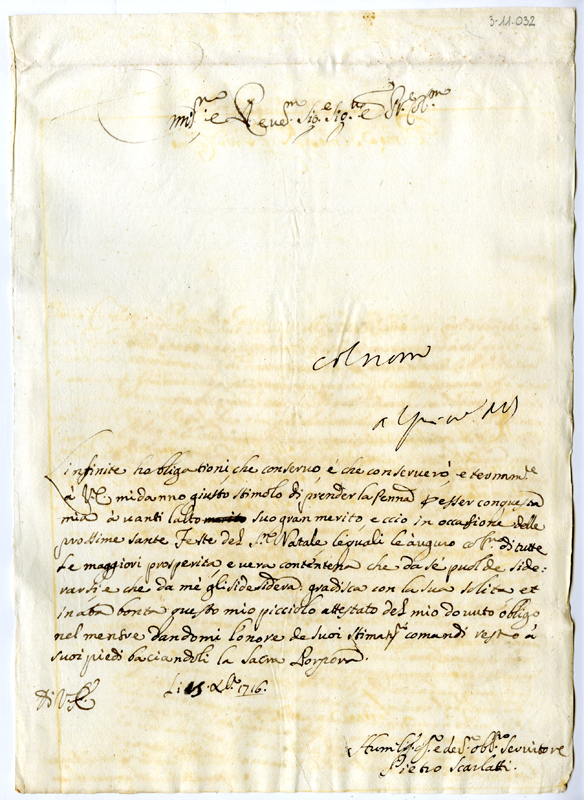 3-11-032
Em.^o e Rever.^mo Sig.^re Sig.^re e P.rone Col.^mo
L'infinite hobligationi, che conservo, é che conserveró, eternam.^e
à V.E. mi danno giusto stimolo di prender la penna p esser con questa
mia à vanti l'alto suo gran merito, e ciò in occassione delle
prossime Sante Feste del S.^mo Natale le quali le auguro di tutte
le maggiori prosperita e vera contenteza che da sé puol de side:
rarsi e che da mé gli si desidera. gradisca con la sua solita et
in ata bonta questo mio picciolo attestato del mio dovuto obligo
nel mentre dandomi l'onore de suoi stimat.^mi comandi resto à
suoi piedi baciandoli la Sacra Porpora.
Di V.E. Li 15. Xbre 1716.
Humilis.^mo e de.^mo obb.^mo Servitore
Pietro Scarlatti.